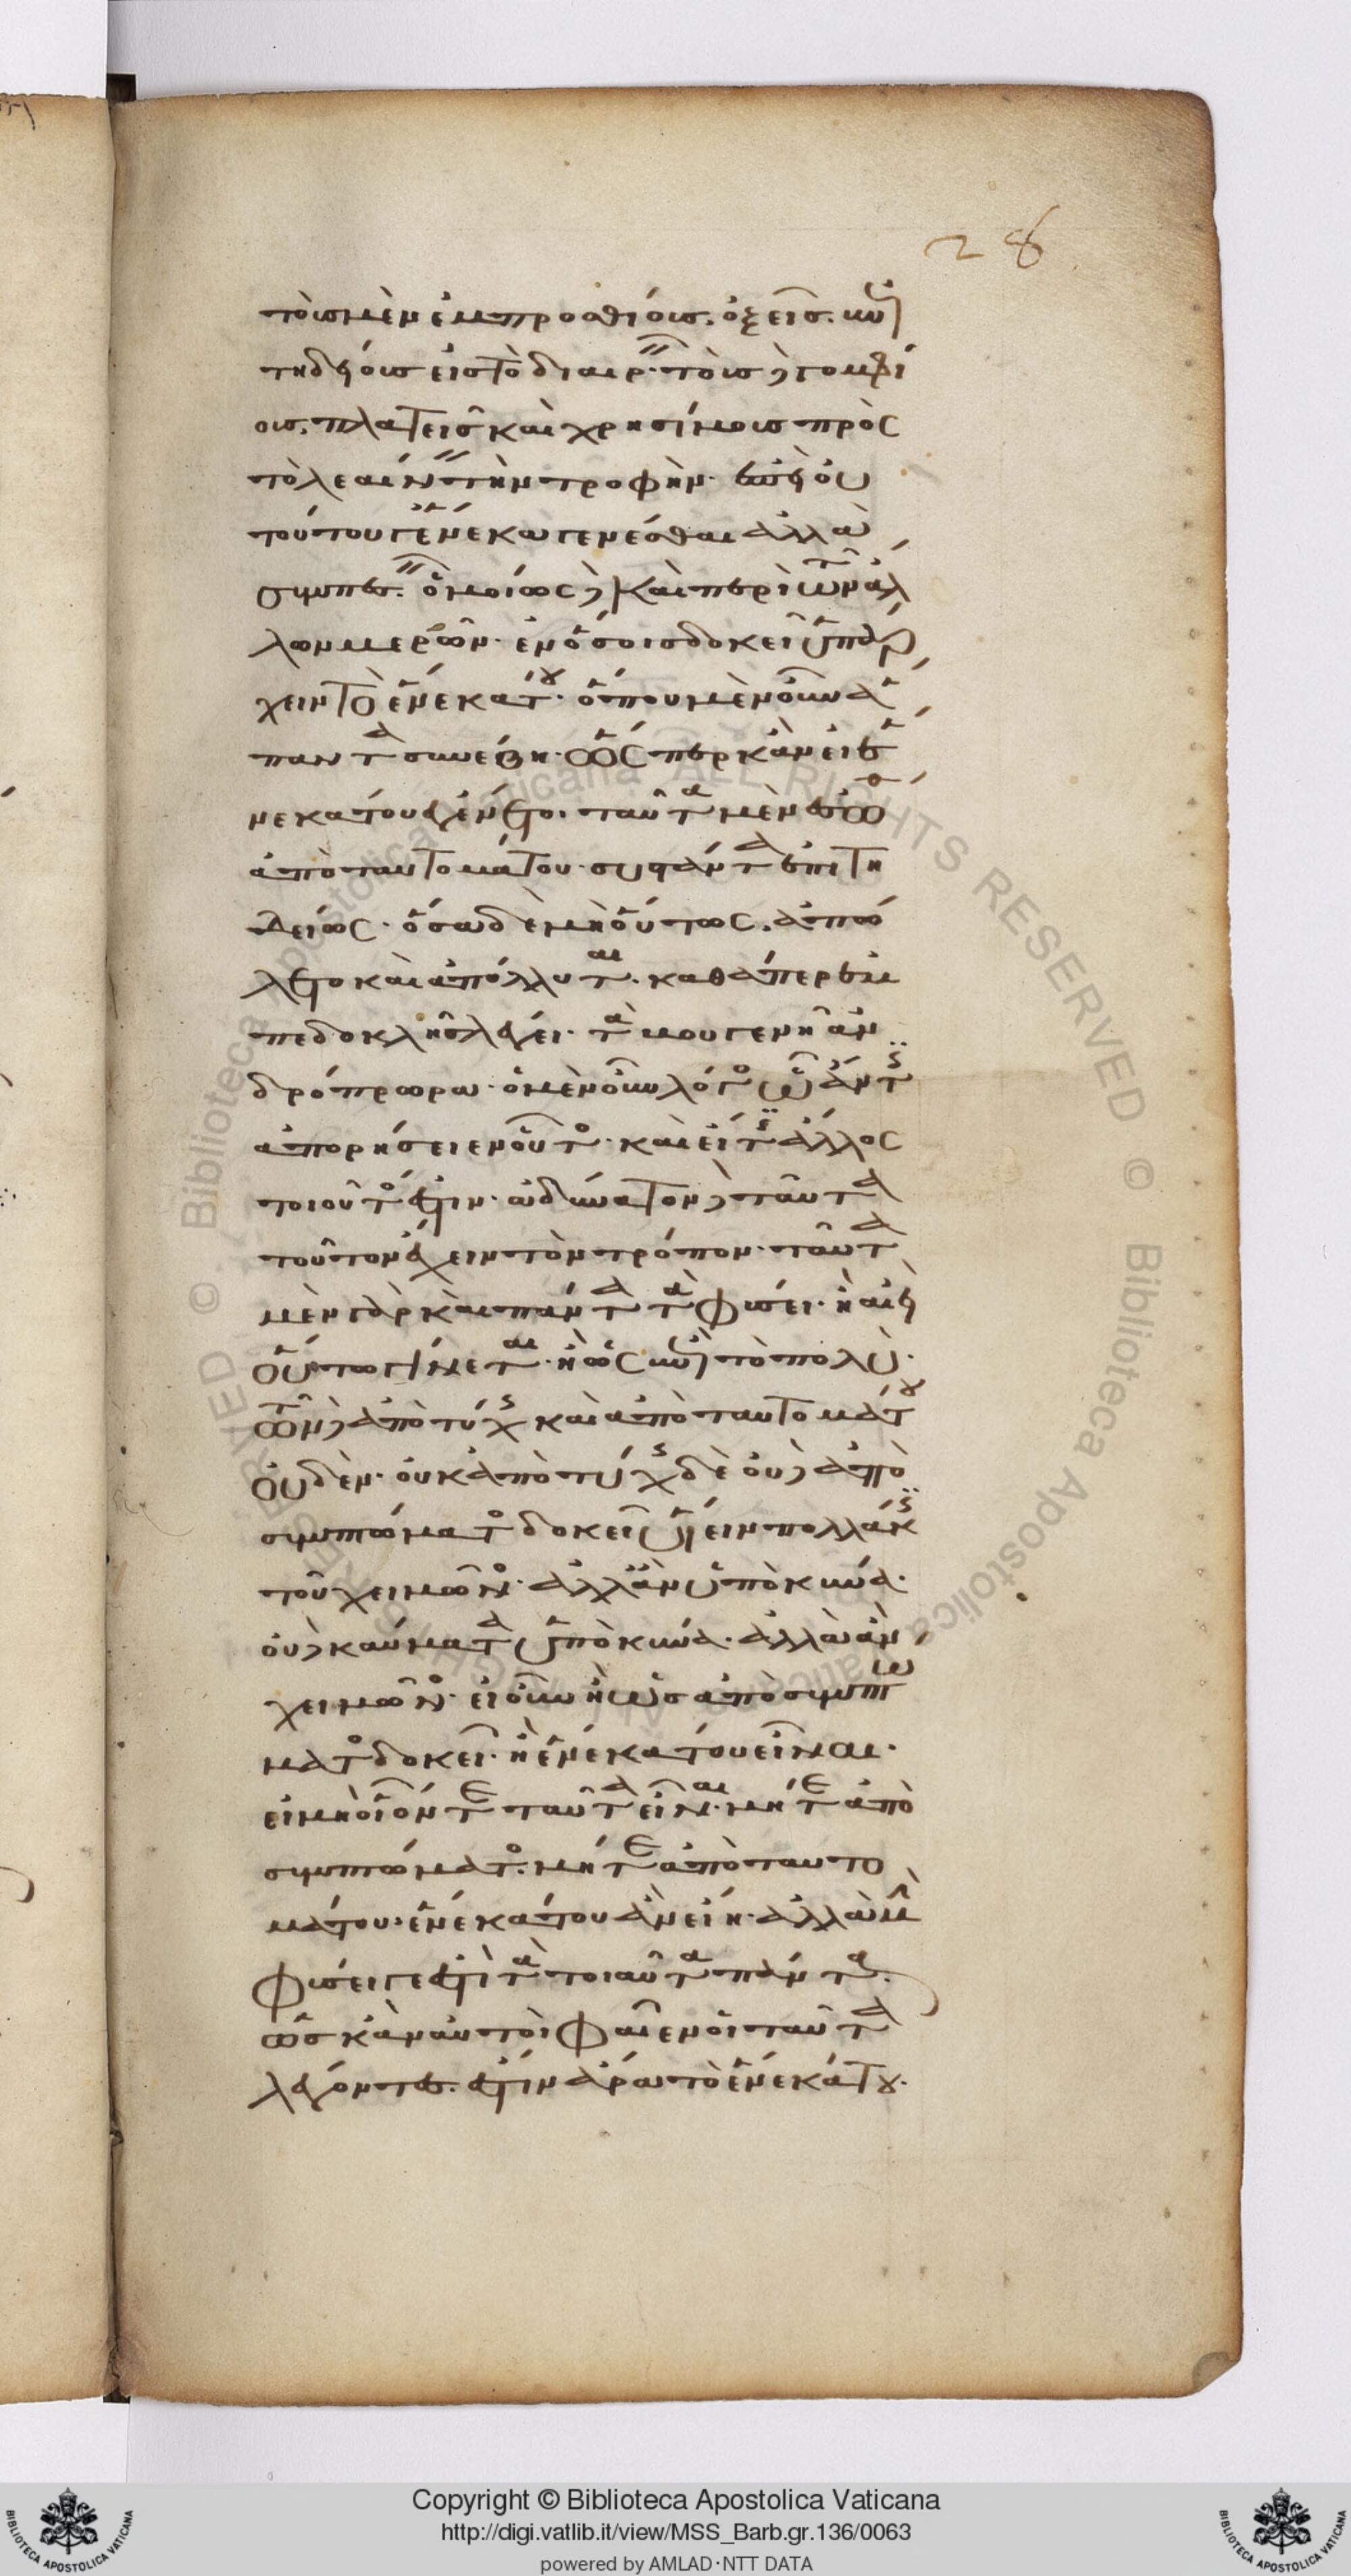 28
τοὺς μὲν ἐμπροσθίους. ὀξεῖς. καὶ ἐπι
τηδείους εἰς τὸ διαιρεῖν· τοὺς δὲ γομφί
ους. πλατεῖς καὶ χρησίμους πρὸς
τὸ λεαίνειν τὴν τροφήν· ἐπεὶ οὐ
τούτου γε ἕνεκα γενέσθαι ἀλλὰ
συμπεσεῖν. ὁμοίως δὲ καὶ περὶ τῶν ἄλ
λων μερῶν· ἐν ὅσοις δοκεῖ ὑπάρ
χειν τὸ ἕνεκά του· ὅπου μὲν οὖν ἅ
παντα συνέβη· ὥσπερ κἂν εἰ ἕ
νεκά του ἐγένετο. ταῦτα μὲν ἐσώθη
ἀπὸ ταυτομάτου συστάντα ἐπιτη
δείως· ὅσα δὲ μὴ οὕτως. ἀπώ
λετο καὶ ἀπόλλυται. καθάπερ ἐμ
πεδοκλῆς λέγει· τὰ βουγενῆ ἀν
δρόπρωρα· ὁ μὲν οὖν λόγος ᾧ ἄν τις
ἀπορήσειεν οὗτος· καὶ εἴ τις ἄλλος
τοιοῦτός ἐστιν· ἀδύνατον δὲ ταῦτα
τοῦτον ἔχειν τὸν τρόπον· ταῦτα
μὲν γὰρ καὶ πάντα τὰ φύσει· ἢ ἀεὶ
οὕτω γίνεται· ἢ ὡς ἐπὶ τὸ πολύ·
τῶν δὲ ἀπὸ τύχης καὶ ἀπὸ ταυτομάτου
οὐδέν· οὐκ ἀπὸ τύχης δὲ οὐδὲ ἀπὸ
συμπτώματος δοκεῖ ὕειν πολλάκις
τοῦ χειμῶνος· ἀλλ' ἂν ὑπὸ κύνα·
οὐδὲ καύματα ὑπὸ κύνα· ἀλλὰ ἂν
χειμῶνος· εἰ οὖν ἢ ὡς ἀπὸ συμπτώ
ματος δοκεῖ· ἢ ἕνεκά του εἶναι·
εἰ μὴ οἷόν τε ταῦτα εἶναι μήτε ἀπὸ
συμπτώματος. μήτε ἀπὸ ταυτο
μάτου· ἕνεκά του ἂν εἴη· ἀλλὰ μὴν
φύσει γέ ἐστι τὰ τοιαῦτα πάντα.
ὡς κἂν αὐτοὶ φαῖεν οἱ ταῦτα
λέγοντες. ἔστιν ἄρα τὸ ἕνεκά του.
Copyright © Biblioteca Apostolica Vaticana
http://digi.vatlib.it/view/MSS_Barb.gr.136/0063
powered by AMLAD·NTT DATA